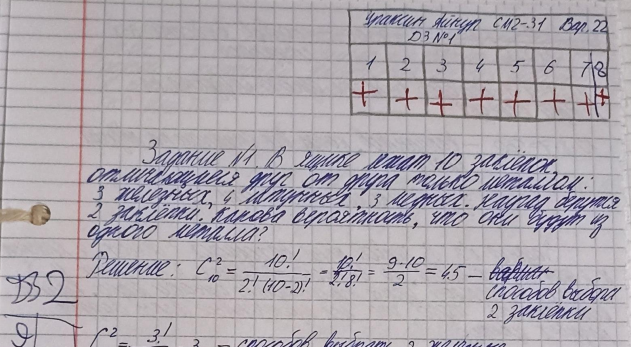 Уракчин Айнур СМ2-31 Вар. 22
ДЗ №1
1 2 3 4 5 6 7 8
+ + + + + + + +
Задание №1. В ящике лежат 10 заклёпок,
отличающиеся друг от друга только металлом:
3 железных, 4 латунных, 3 медных. Наугад берутся
2 заклепки. Какова вероятность, что они будут из
одного металла?
Решение: C²₁₀ = 10! / 2!(10-2)! = 10! / 2!8! = 9·10 / 2 = 45 –
способов выбора
2 заклёпки
ДЗ2
C² = 3! 3 – способов выбрать 2